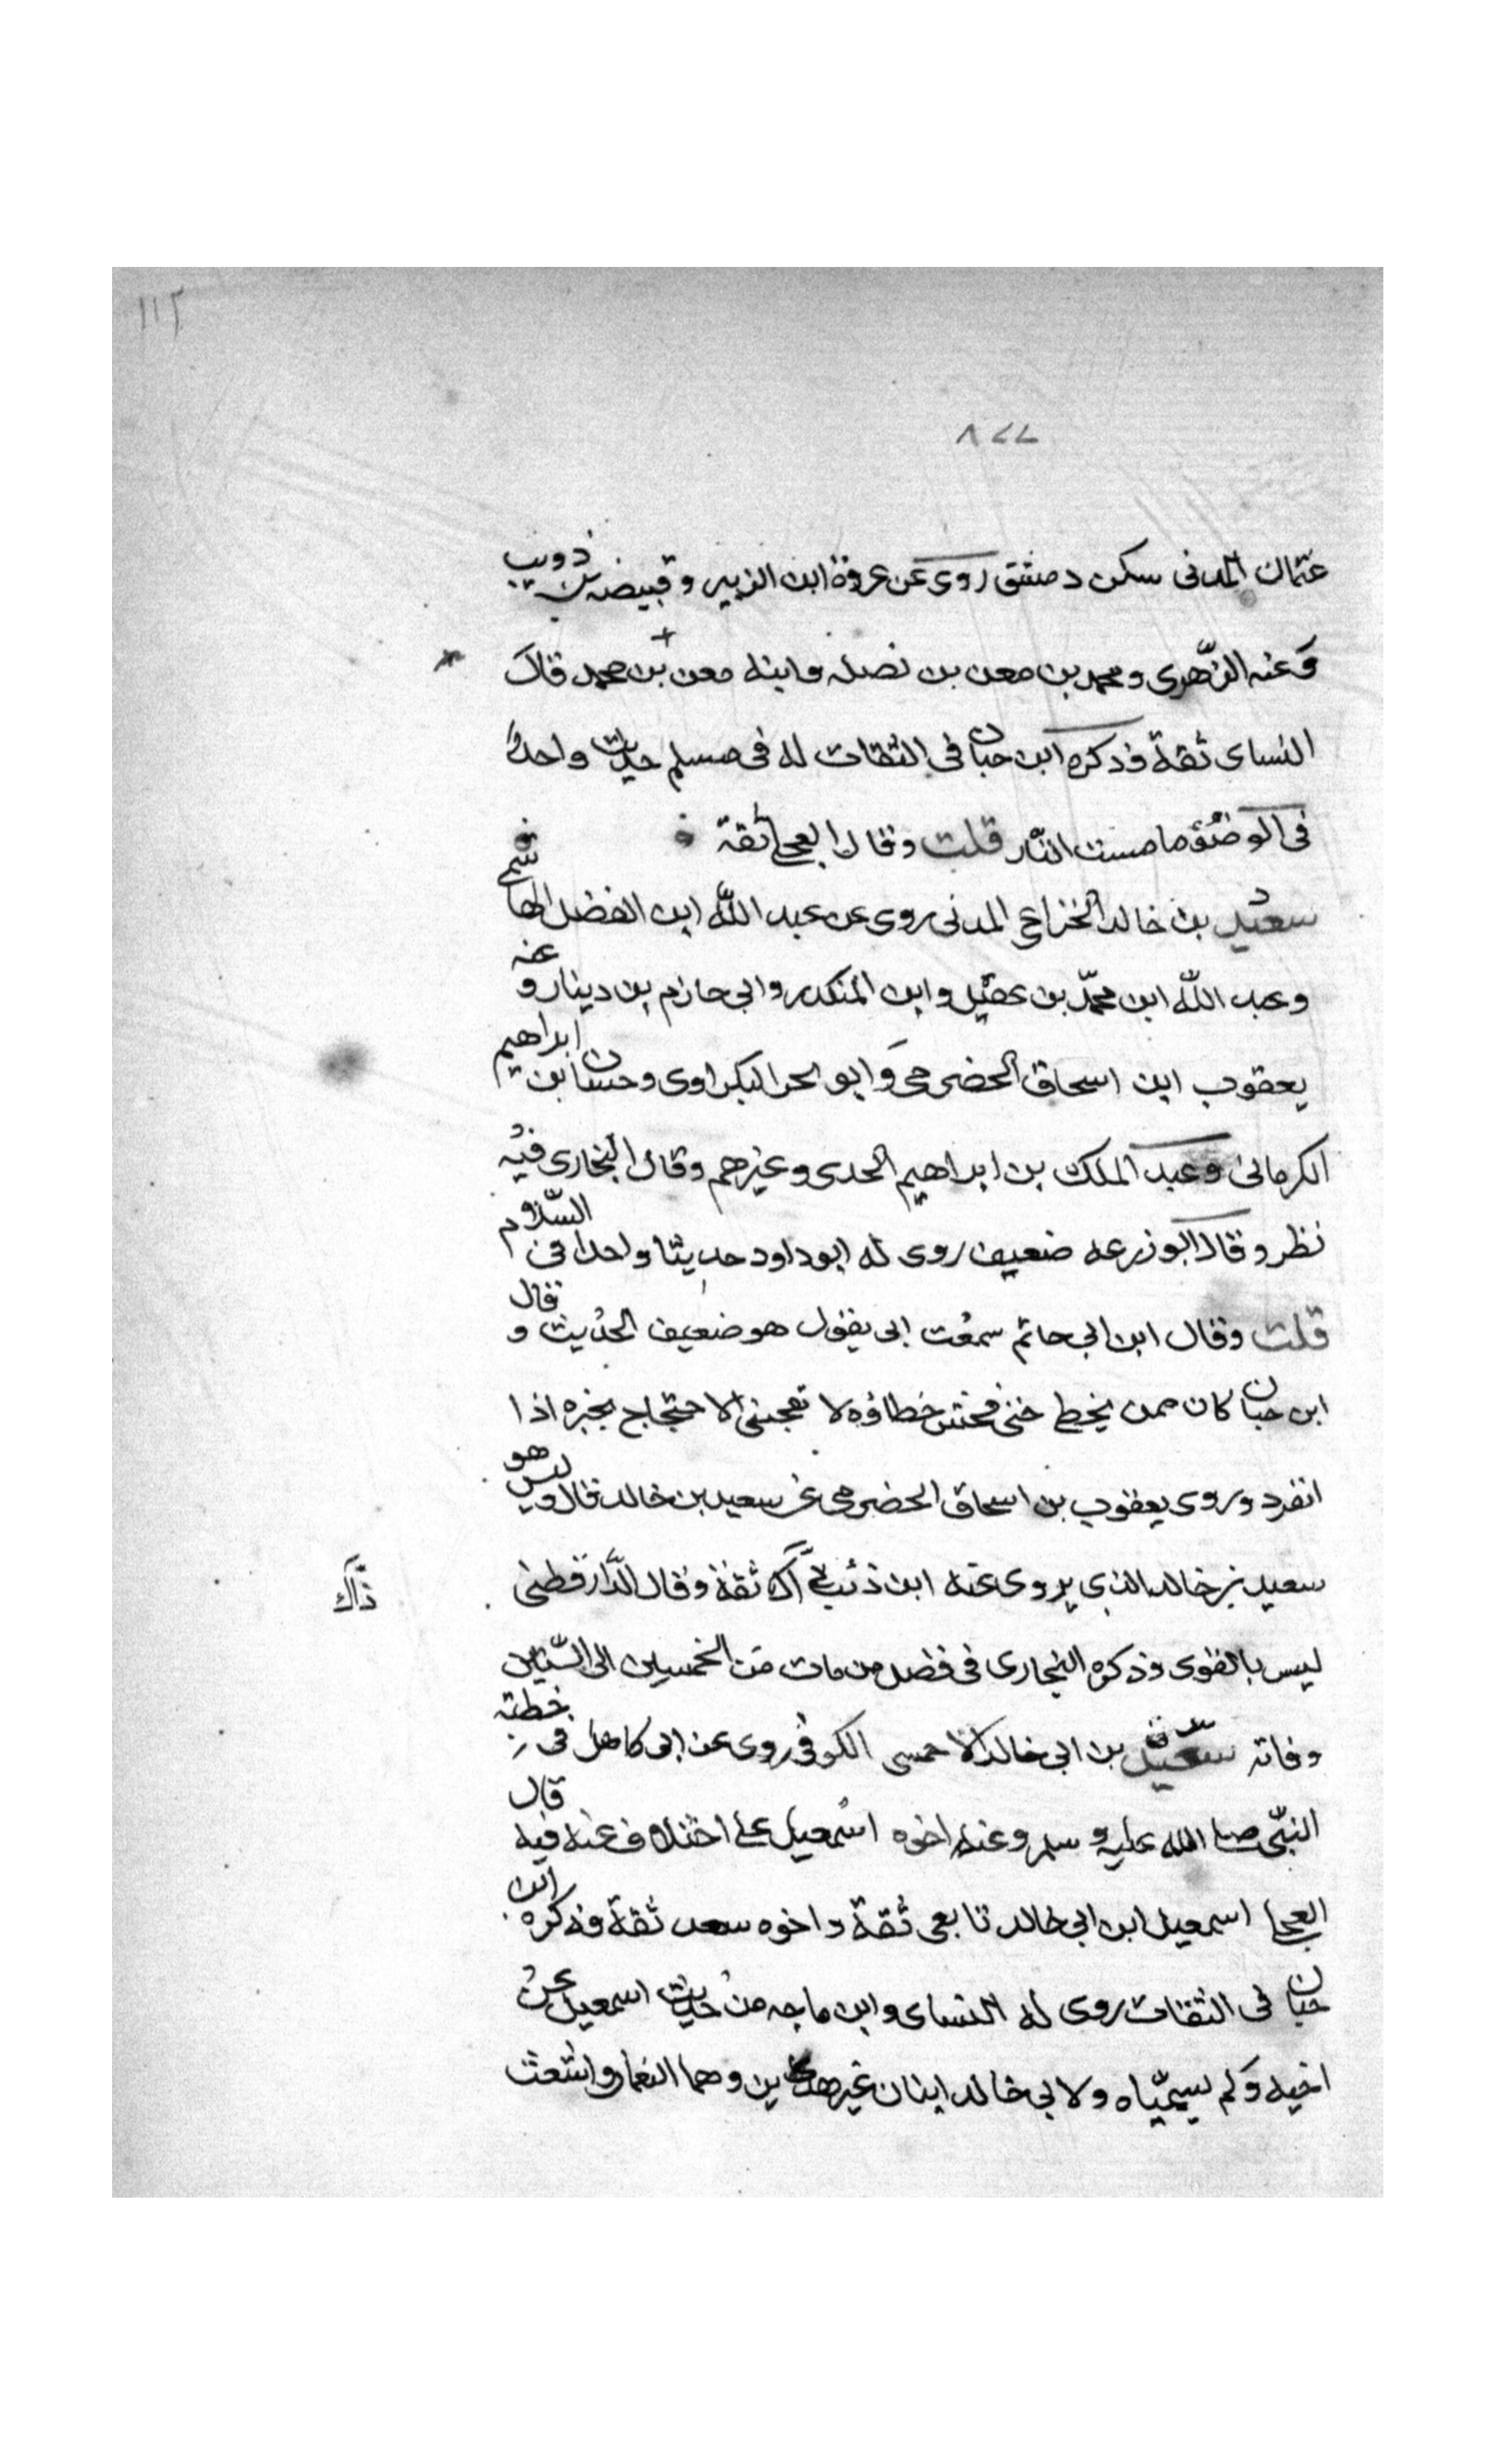 ١١٢
٨٧٧
عثمان المدنى سكن دمشق روى عن عروة ابن الزبير وقبيصه بن ذويب
وعنه الزهرى ومحمد بن معن بن نضله وابنه معن بن محمد قال
النساى ثقة وذكره ابن حبان فى الثقات له فى مسلم حديث واحد
فى الوضؤ مما مست النار قلت وقال العجلى ثقة
سعيد بن خالد الخزاعى المدنى روى عن عبد الله ابن الفضل الهاشمى
وعبد الله ابن محمد بن عقيل وابن المنكدر وابى حازم بن دينار وعنه
يعقوب ابن اسحاق الحضرمى وابو بحر البكراوى وحسان بن ابراهيم
الكرمانى وعبد الملك بن ابراهيم الجدى وغيرهم وقال البخارى فيه
نظر وقال ابو زرعه ضعيف روى له ابو داود حديثا واحدا فى السلام
قلت وقال ابن ابى حاتم سمعت ابى يقول هو ضعيف الحديث وقال
ابن حبان كان ممن يخطى حتى فحش خطاؤه لا تعجبنى الاحتجاج بخبره اذا
انفرد وروى يعقوب بن اسحاق الحضرمى عن سعيد بن خالد قال وليس هو
سعيد بن خالد الذى يروى عنه ابن ذئب ثقة وقال الدارقطنى
ذاك
ليس بالقوى وذكره البخارى فى فضل من مات من الخمسين الى الستين
وفاته سعيد بن ابى خالد الاحمسى الكوفى روى عن ابى كاهل فى خطبة
النبى صلى الله عليه وسلم وعنه اخوه اسمعيل على اختلاف عنه فيه قال
العجلى اسمعيل ابن ابى خالد تابعى ثقة واخوه سعد ثقة وذكره ابن
حبان فى الثقات روى له النساى وابن ماجه من حديث اسمعيل عن
اخيه ولم يسمياه ولابى خالد ابنان غير هذين وهما النعمان واشعث